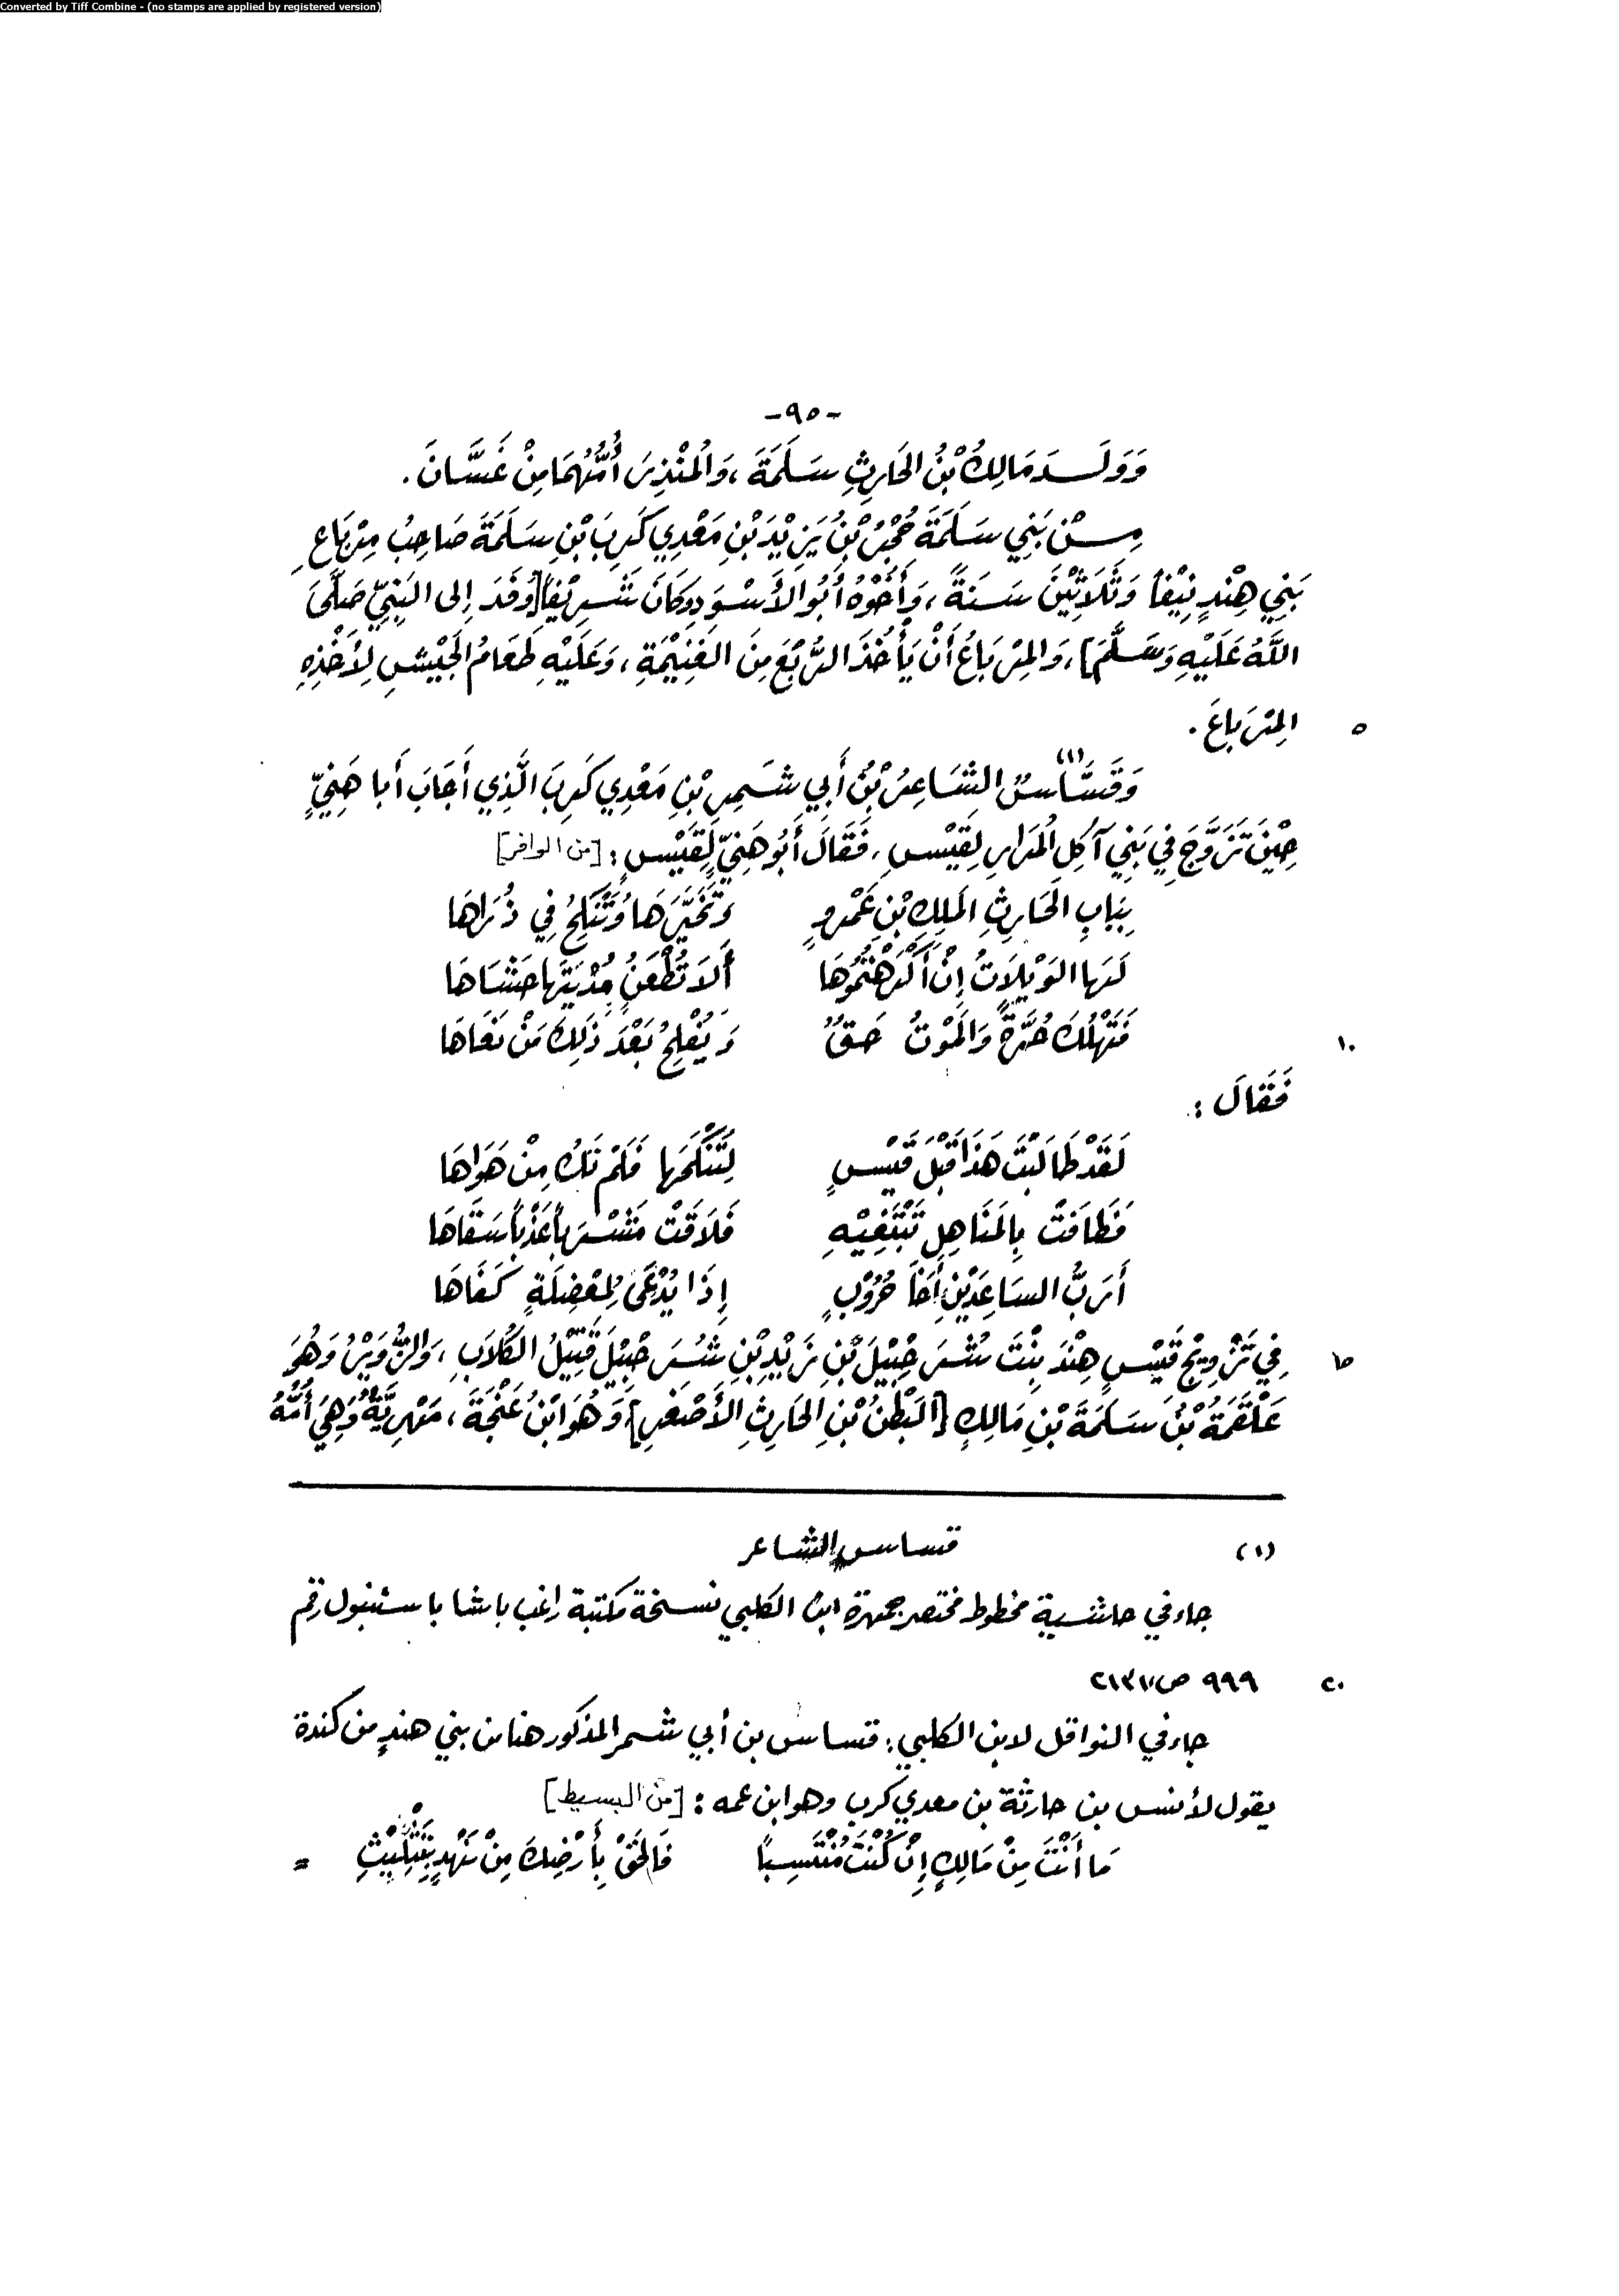 Converted by Tiff Combine - (no stamps are applied by registered version)
-٩٥-
وَوَلَـدَ مَالِكُ بْنُ الحَارِثِ سَلَمَةَ ، وَالمُنْذِرَ أُمُّهُمَا مِنْ غَسَّانَ .
مِـنْ بَنِي سَلَمَةَ حُجْرُ بْنُ يَزِيْدَ بْنِ مَعْدِي كَرِبَ بْنِ سَلَمَةَ صَاحِبُ مِرْبَاعِ
بَنِي هِنْدٍ نِيْفاً وَثَلَاثِيْنَ سَنَةً ، وَأَخُوْهُ أَبُو الأَسْوَدِ وكَانَ شَرِيْفاً [وَفَدَ إلى النَّبِيِّ صَلَّى
اللَّهُ عَلَيْهِ وَسَلَّمَ] ، وَالمِرْبَاعُ أَنْ يَأْخُذَ الرُّبْعَ مِنَ الغَنِيْمَةِ ، وَعَلَيْهِ طَعَامُ الجَيْشِ لِأَخْذِهِ
٥ المِرْبَاعَ .
وَقَسَّاسٌ (١) الشَّاعِرُ بْنُ أَبِي شَمِرِ بْنِ مَعْدِي كَرِبَ الَّذِي أَجَابَ أَبا هَنِيٍّ
حِيْنَ تَزَوَّجَ فِي بَنِي آكِلِ المُرَارِ لِقَيْسِ ، فَقَالَ أَبُو هَنِيٍّ لِقَيْسٍ : [من الوافر]
بِبَابِ الحَارِثِ المَلِكِ بْنِ عَمْروٍ وَتَخَيَّرَهَا وَتَنْكِحُ فِي ذُرَاهَا
لَهَا الوَيْلَاتُ إِنْ أَكْرَهْتُمُوْهَا أَلَا تُطْعَنُ بِمُدْيَتِها حَشَاهَا
١٠ فَتَهْلُكَ حُرَّةً وَالمَوْتُ حَقٌّ وَيُفْلِحُ بَعْدَ ذَلِكَ مَنْ نَعَاهَا
فَقَالَ :
لَقَدْ طَالَبْتَ هَذَا قَبْلَ قَيْسٍ لِتَنْكَحَها فَلَمْ تَكُ مِنْ هَوَاهَا
فَطَافَتْ بِالمَنَاهِلِ تَبْتَغِيْهِ فَلَاقَتْ مَشْرَباً عَذْباً سَقَاهَا
أَرَبُّ السَاعِدَيْنِ أَخَا حُرُوْبٍ إِذَا يُدْعَى لِمُعْضِلَةٍ كَفَاهَا
١٥ فِي تَزْوِيْجِ قَيْسٍ هِنْدَ بِنْتَ شُرَحْبِيْلَ بْنِ زَيْدِ بْنِ شُرَحْبِيْلَ قَتِيْلُ الكُلَابِ ، وَالزُّوَيْرُ وَهُوَ
عَلْقَمَةُ بْنُ سَلَمَةَ بْنِ مَالِكٍ [البَطْنُ بْنِ الحَارِثِ الأَصْغَرِ] وَهُوَ ابْنُ عَنْجَةَ ، مَهْرِيَّةٌ وَهِيَ أُمُّهُ
(١) قساس الشاعر
جاء في حاشية مخطوط مختصر جمهرة ابن الكلبي نسخة مكتبة راغب باشا باستنبول رقم
٢٠ ٩٩٩ ص
جاء في النواقل لابن الكلبي : قساس بن أبي شمر المذكور هنا من بني هندٍ من كندة
يقول لأنس بن حارثة بن معدي كرب وهو ابن عمه : [من البسيط]
مَا أَنْتَ مِنْ مَالِكٍ إِنْ كُنْتَ مُنْتَسِبًا فَالحَقْ بِأَرْضِكَ مِنْ نَهْدٍ بِتَثْلِيْثِ =